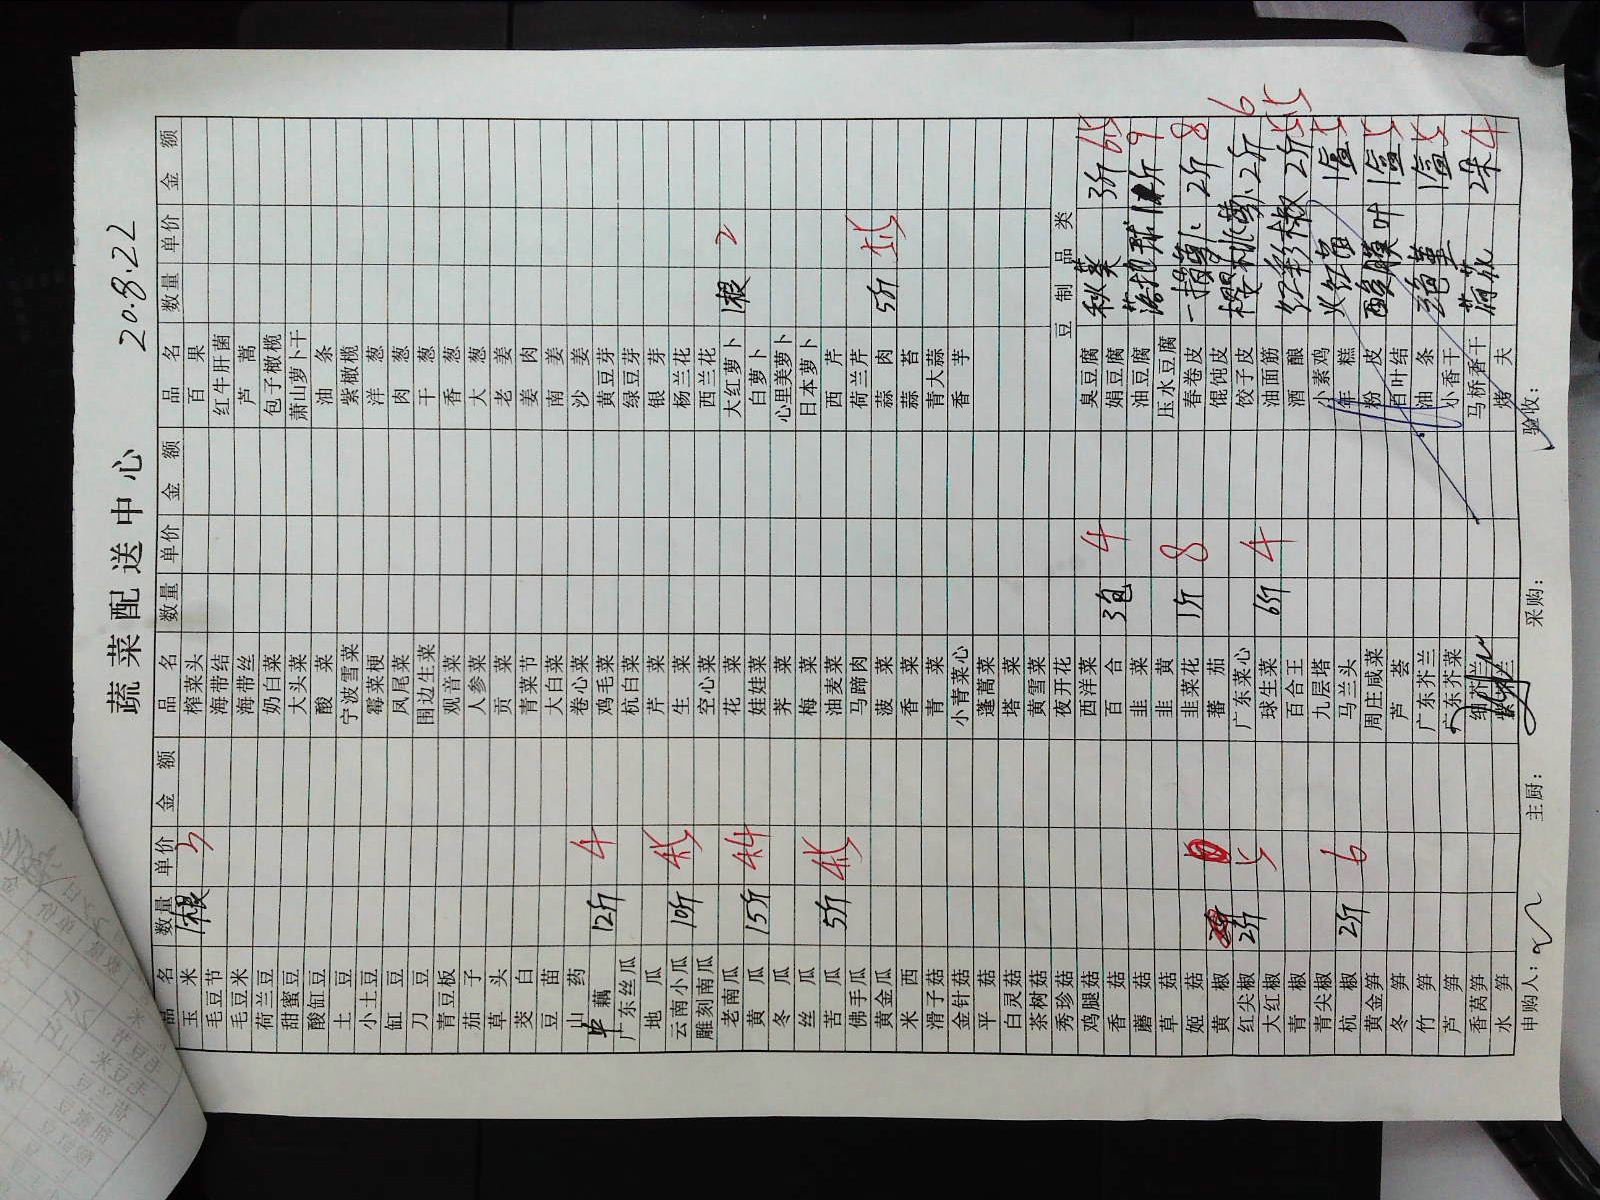 蔬菜配送中心
20.8.22
品名 数量 单价 金额
玉米 1根 3
毛豆节
毛豆米
荷兰豆
甜蜜豆
酸缸豆
土豆
小土豆
缸豆
刀豆
青豆板
茄子
草头
茭白
豆苗
山药
藕 12斤 4
广东丝瓜
地瓜
云南小瓜 10斤 4.5
雕刻南瓜
老南瓜
黄瓜 15斤 4.4
冬瓜
丝瓜
苦瓜 5斤 4.5
佛手瓜
黄金瓜
米西
滑子菇
金针菇
平菇
白灵菇
茶树菇
秀珍菇
鸡腿菇
香菇
蘑菇
草菇
姬菇
黄椒
红尖椒 2斤 5
大红椒
青椒
青尖椒
杭椒 2斤 6
黄金笋
冬笋
竹笋
芦笋
香莴笋
水笋
品名 数量 单价 金额
榨菜头
海带结
海带丝
奶白菜
大头菜
酸菜
宁波雪菜
霉菜梗
凤尾菜
围边生菜
观音菜
人参菜
贡菜
青菜节
大白菜
卷心菜
鸡毛菜
杭白菜
芹菜
生菜
空心菜
花菜
娃娃菜
荠菜
梅菜
油麦菜
马蹄肉
菠菜
香菜
青菜
小青菜心
蓬蒿菜
塔菜
黄雪菜
夜开花
西洋菜
百合 3包 4
韭菜
韭黄
韭菜花 1斤 8
蕃茄
广东菜心
球生菜 6斤 4
百合王
九层塔
马兰头
周庄咸菜
芦荟
广东芥兰
广东芥菜
品名 数量 单价 金额
百果
红牛肝菌
芦蒿
包子橄榄
萧山萝卜干
油条
紫橄榄
洋葱
肉葱
干葱
香葱
大葱
老姜
姜肉
南姜
沙姜
黄豆芽
绿豆芽
银芽
杨兰花
西兰花
大红萝卜 1根 2
白萝卜
心里美萝卜
日本萝卜
西芹
荷兰芹
蒜肉 5斤 5.5
蒜苔
青大蒜
香芋
豆制品类
臭豆腐 秋葵 3斤 6.5
娟豆腐
油豆腐 9
压水豆腐
春卷皮 2斤 8
馄饨皮
饺子皮 樱桃萝卜 2斤 6
油面筋
酒酿 红彩椒 2斤 5.5
小素鸡
年糕 1盒 5
粉皮
百叶结 1盒 5
油条 三色堇 1盒 5
小香干
马桥香干 荷花 2朵 4
烤夫
申购人：
主厨：
采购：
验收：